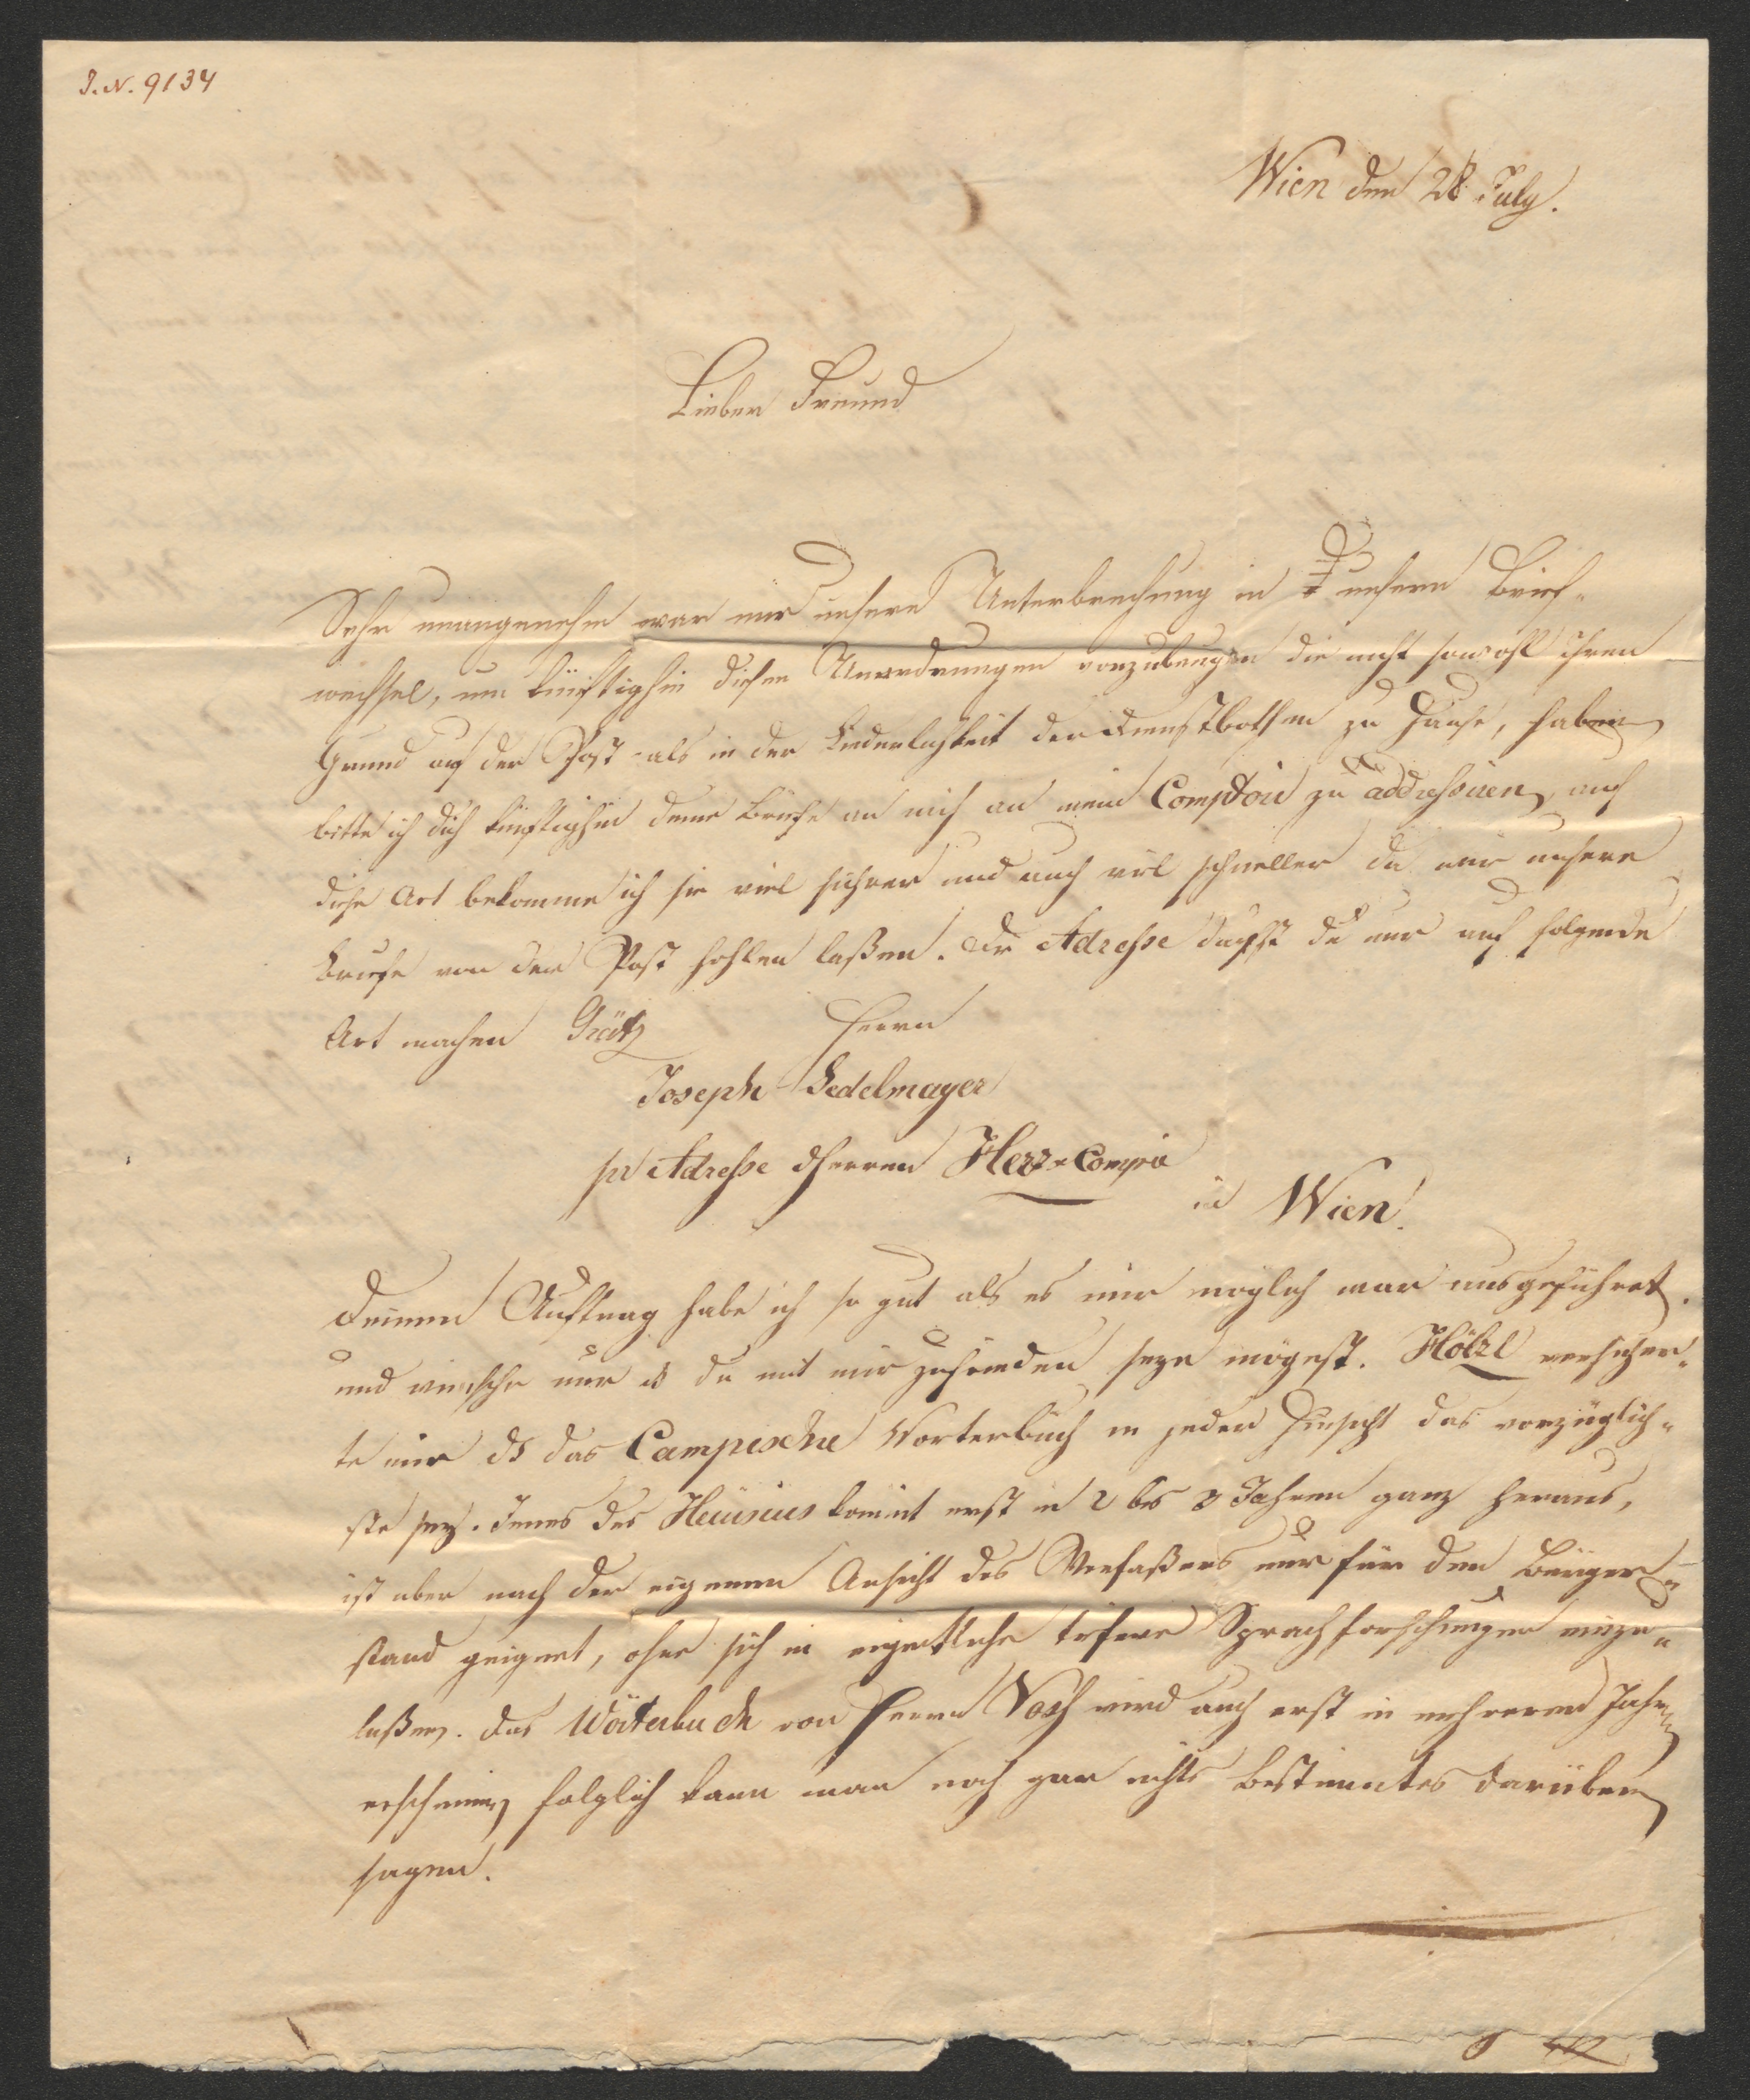 I. N. 9134
Wien den 28 July.
Lieber Freund
Sehr unangenehm war mir unsere Unterbrechung in unsern Brief-
wechsel, um künftighin diesen Unordnungen vorzubeugen die nicht sowohl ihren
Grund auf der Post als in der Liederlichkeit der Dienstbothen zu Hause, haben
bitte ich dich künftighin deine Briefe an mich an mein Comptoir zu addressiren, auf
diese Art bekomme ich sie viel sichrer und auch viel schneller da wir unsere
Briefe von der Post hohlen laßen. Die Adresse darfst du nur auf folgende
Art machen Grätz Herrn
Joseph Sedelmayer
pr Adresse Herren Herz & Compie
in Wien.
Deinen Auftrag habe ich so gut als es mir möglich war ausgeführet.
und wünsche nur ds du mit mir zufrieden seyn mögest. Hölzl versicher-
te mir ds das Campesche Worterbuch in jeder Hinsicht das vorzüglich-
ste sey. Jenes des Heinsius kommt erst in 2 bis 3 Jahren ganz heraus,
ist aber nach der eigenen Ansicht des Verfaßers nur für den Bürger-
stand geignet, ohne sich in eigentliche tiefere Sprachforschungen einzu-
laßen. Das Wörterbuch von Herrn Voß wird auch erst in mehreren Jahren
erscheinen, folglich kann man noch gar nichts bestimmtes darüber
sagen.